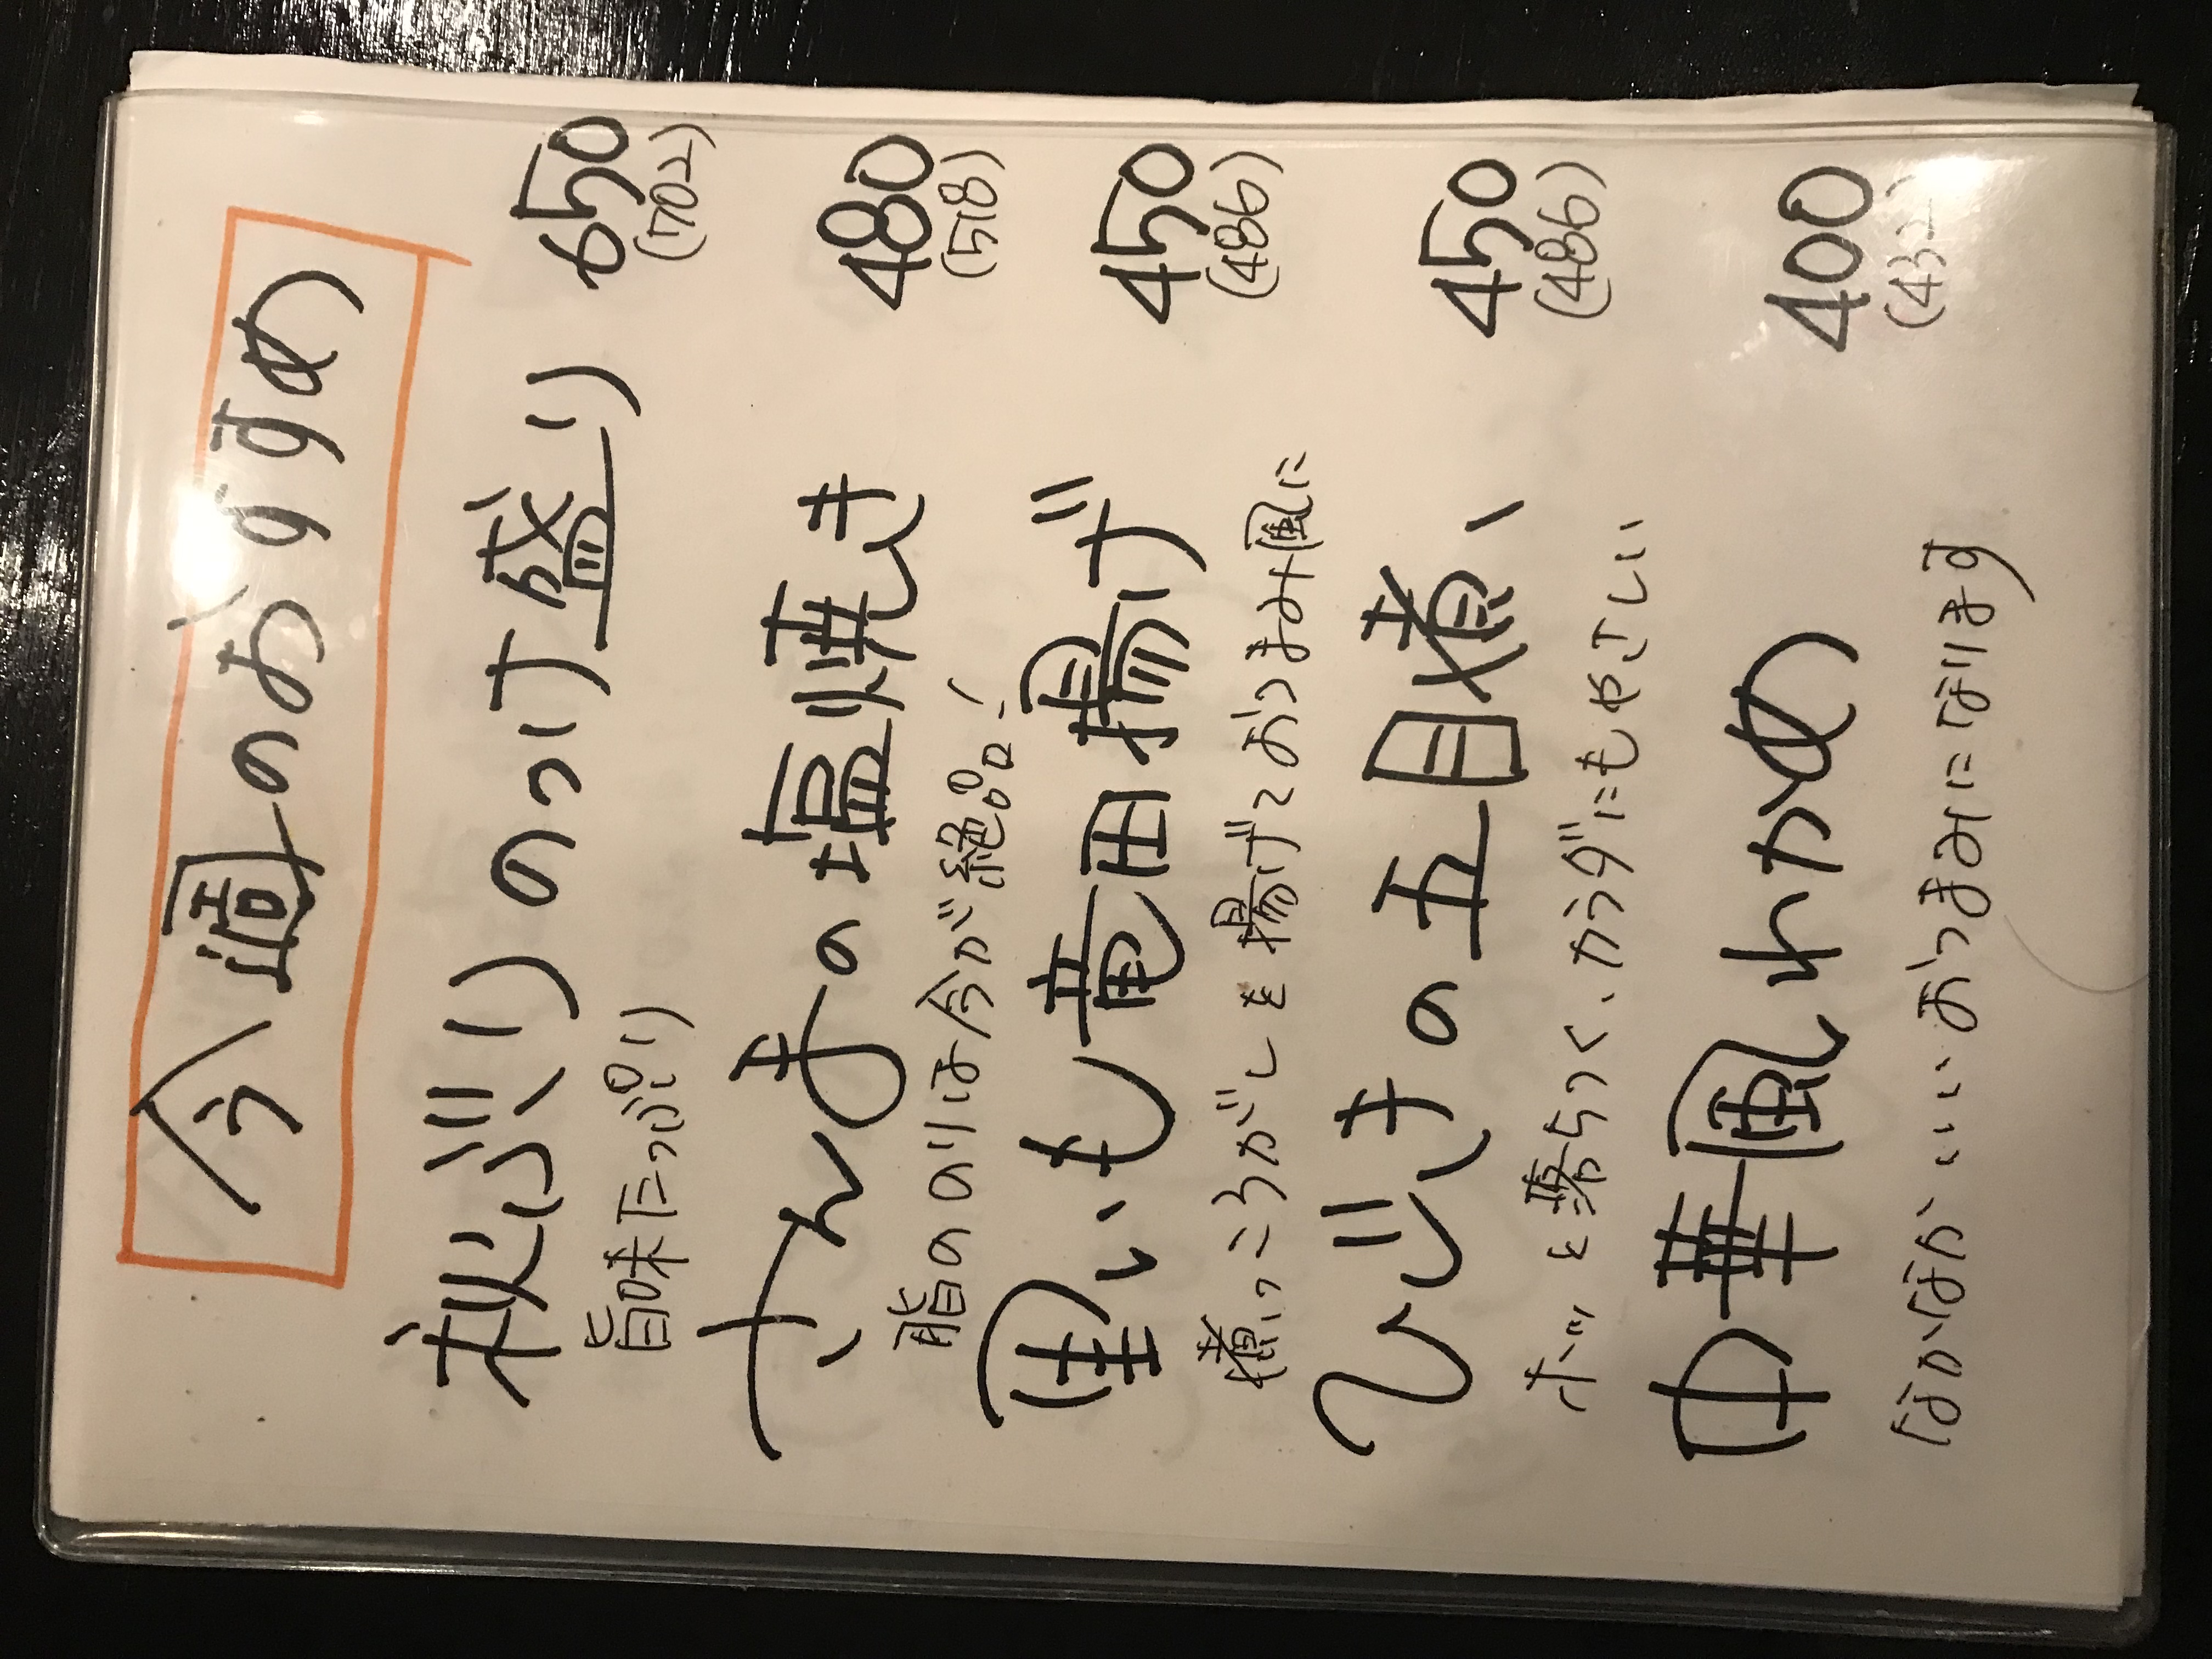 今週のおすすめ
秋ぶりのっけ盛り 650
旨味たっぷり (702)
さんまの塩焼き 480
脂ののりは今が絶品! (518)
里いも竜田揚げ 450
煮っころがしを揚げておつまみ風に (486)
ひじきの五目煮 450
ホッと落ちつく、カラダにもやさしい (486)
中華風わかめ 400
なかなかいいおつまみになります (432)